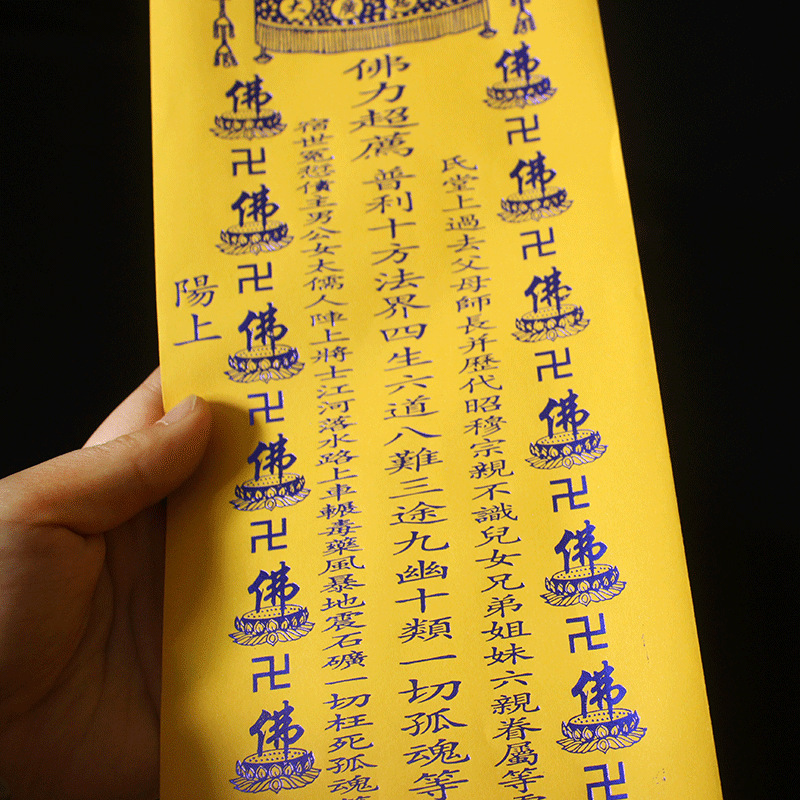 廣大
佛卍佛卍佛卍佛卍佛卍佛卍
氏堂上過去父母師長并歷代昭穆宗親不識兒女兄弟姐妹六親眷屬等
佛力超薦普利十方法界四生六道八難三途九幽十類一切孤魂等
宿世冤愆債主男公女太儒人陣上將士江河落水路上車輾毒藥風暴地震石礦一切枉死孤魂
佛卍佛卍佛卍佛卍佛卍佛
陽上